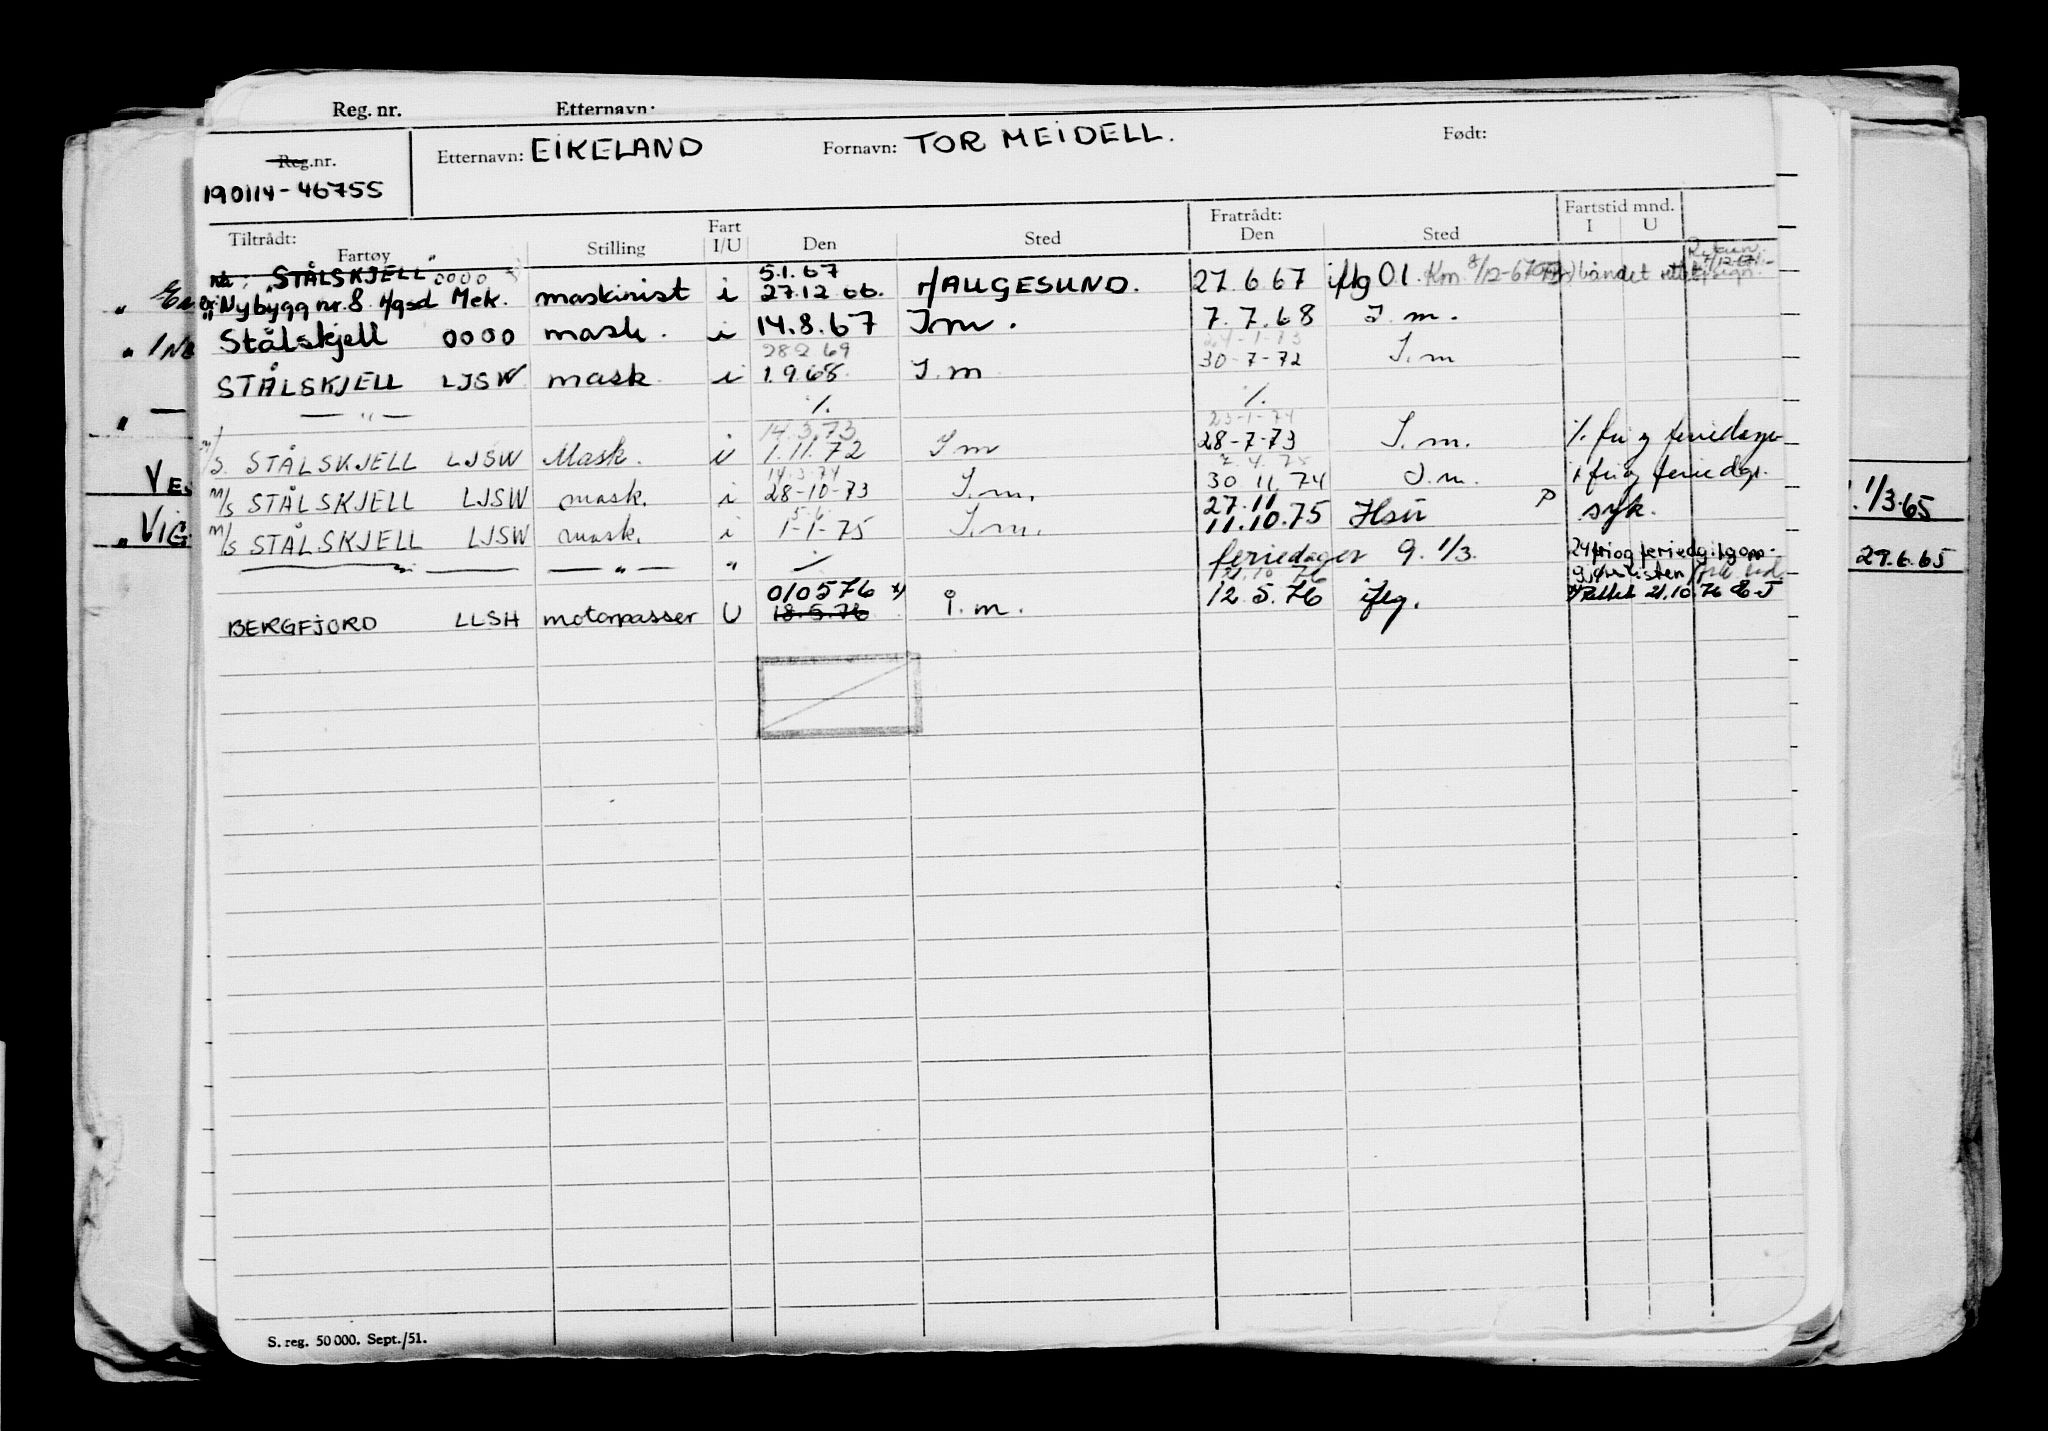 Reg. nr. Etternavn:
Reg.nr. Etternavn: EIKELAND Fornavn: TOR MEIDELL. Født:
190114-46755
Tiltrådt: Fart Fratrådt: Fartstid mnd.
Fartøy Stilling I/U Den Sted Den Sted I U
nå: "STÅLSKJELL" 0000 5.1.67
Nybygg nr. 8 Hgsd Mek. maskinist i 27.12 66. HAUGESUND. 27.6.67 iflg O1. Km. 8/12-67 båndet
Stålskjell 0000 mask. i 14.8.67 I m. 7.7.68 I. m.
28 2 69 24-1-73
STÅLSKJELL LJSW mask. i 1.9 68. I. m 30-7-72 I. m
— " — ./. ./.
14.3.73 23-1-74
m/s. STÅLSKJELL LJSW Mask. i 1.11.72 I m 28-7-73 I. m. ./. fri og feriedager
14.3.74 2.4.75
m/s STÅLSKJELL LJSW mask. i 28-10-73 I. m. 30 11.74 I. m. ./. fri og feriedgr.
5.6. 27.11
m/s STÅLSKJELL LJSW mask. i 1-1-75 I. m. 11.10.75 Hsü P syk.
— " — — " — " ./. feriedager 9. 1/3. 24 fri og feriedg.
010576 x) 21.10 76
BERGFJORD LLSH motorpasser U 18.5.76 i. m. 12.5.76 iflg. x) Rettet 21.10.76
Em
" INB
" —
VES
" VIG
1/3.65
29.6.65
S. reg. 50 000. Sept./51.